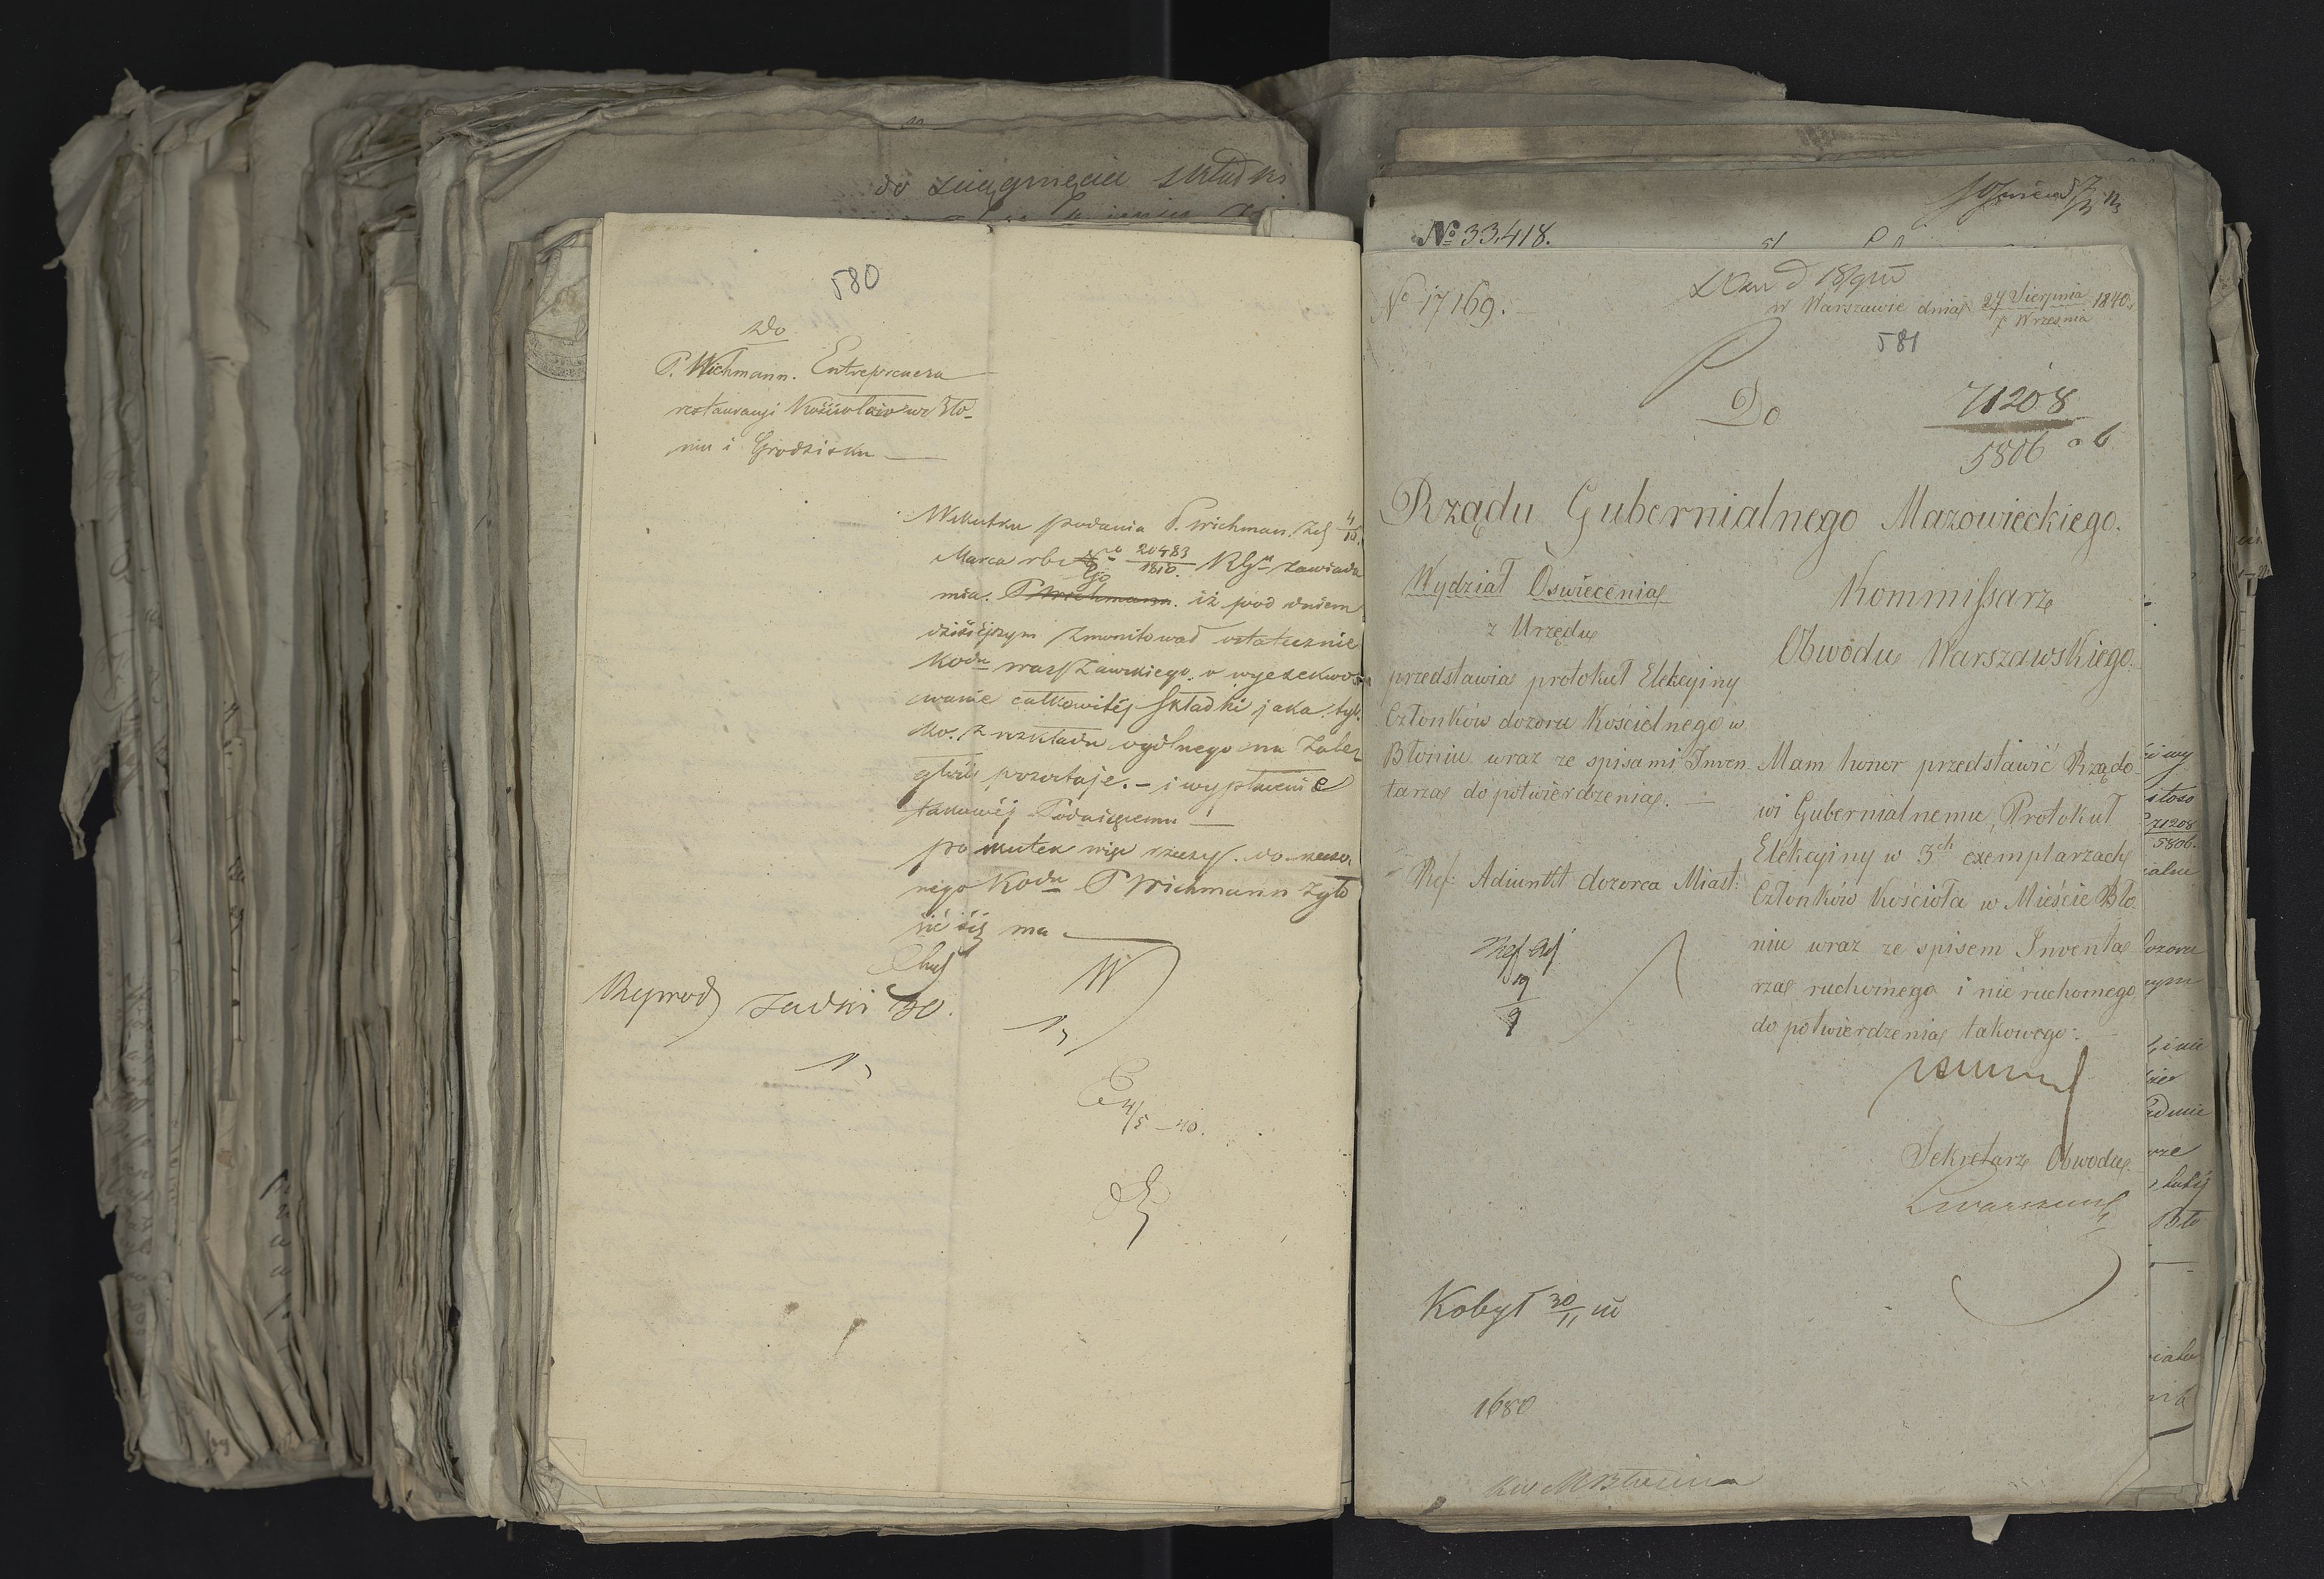 do ściągnięcia składki
580
Do
P. Wichmann. Entreprenera
restauracji Kościołów w Bło-
niu i Grodzisku
Wskutku podania P. Wichman. z d 4/15.
Marca rb. No 20483/1810. RGn zawiada
mia. P Wichmann. iż pod dniem
dzisiejszym zmonitował ostatecznie
Koda warszawskiego. o wyexekwo
wanie całkowitéj składki jaka. tyl.
ko. z rozkładu ogólnego na zale
głości pozostaje. – i wypłacenie
takowéj Podającemu
po skutek więc rzeczy. do rzeczo.
nego Koda P Wichmann zgło
sić się ma.
Exp 4/5 – 40.
No 33,418.
No 17169.
w Warszawie dnia 27 Sierpnia / 8 Września 1840
581
Do
71208
5806 a 6
Rządu Gubernialnego Mazowieckiego.
Wydział Oswiecenia
z Urzędu
przedstawia protokuł Elekcyiny
Członków dozoru Kościelnego w
Błoniu wraz ze spisami Inwen
tarza do potwierdzenia.
Ref: Adiunkt dozorca Miast:
Kommissarz
Obwodu Warszawskiego.
Mam honor przedstawić Rządo-
wi Gubernialnemu, Protokuł
Elekcyiny w 3ch exemplarzach
Członków Kościoła w Mieście Bło
niu wraz ze spisem Inwenta
rza ruchomego i nie ruchomego
do potwierdzenia takowego.
Sekretarz Obwodu
Kobył 30/11
1680
71208
5806.